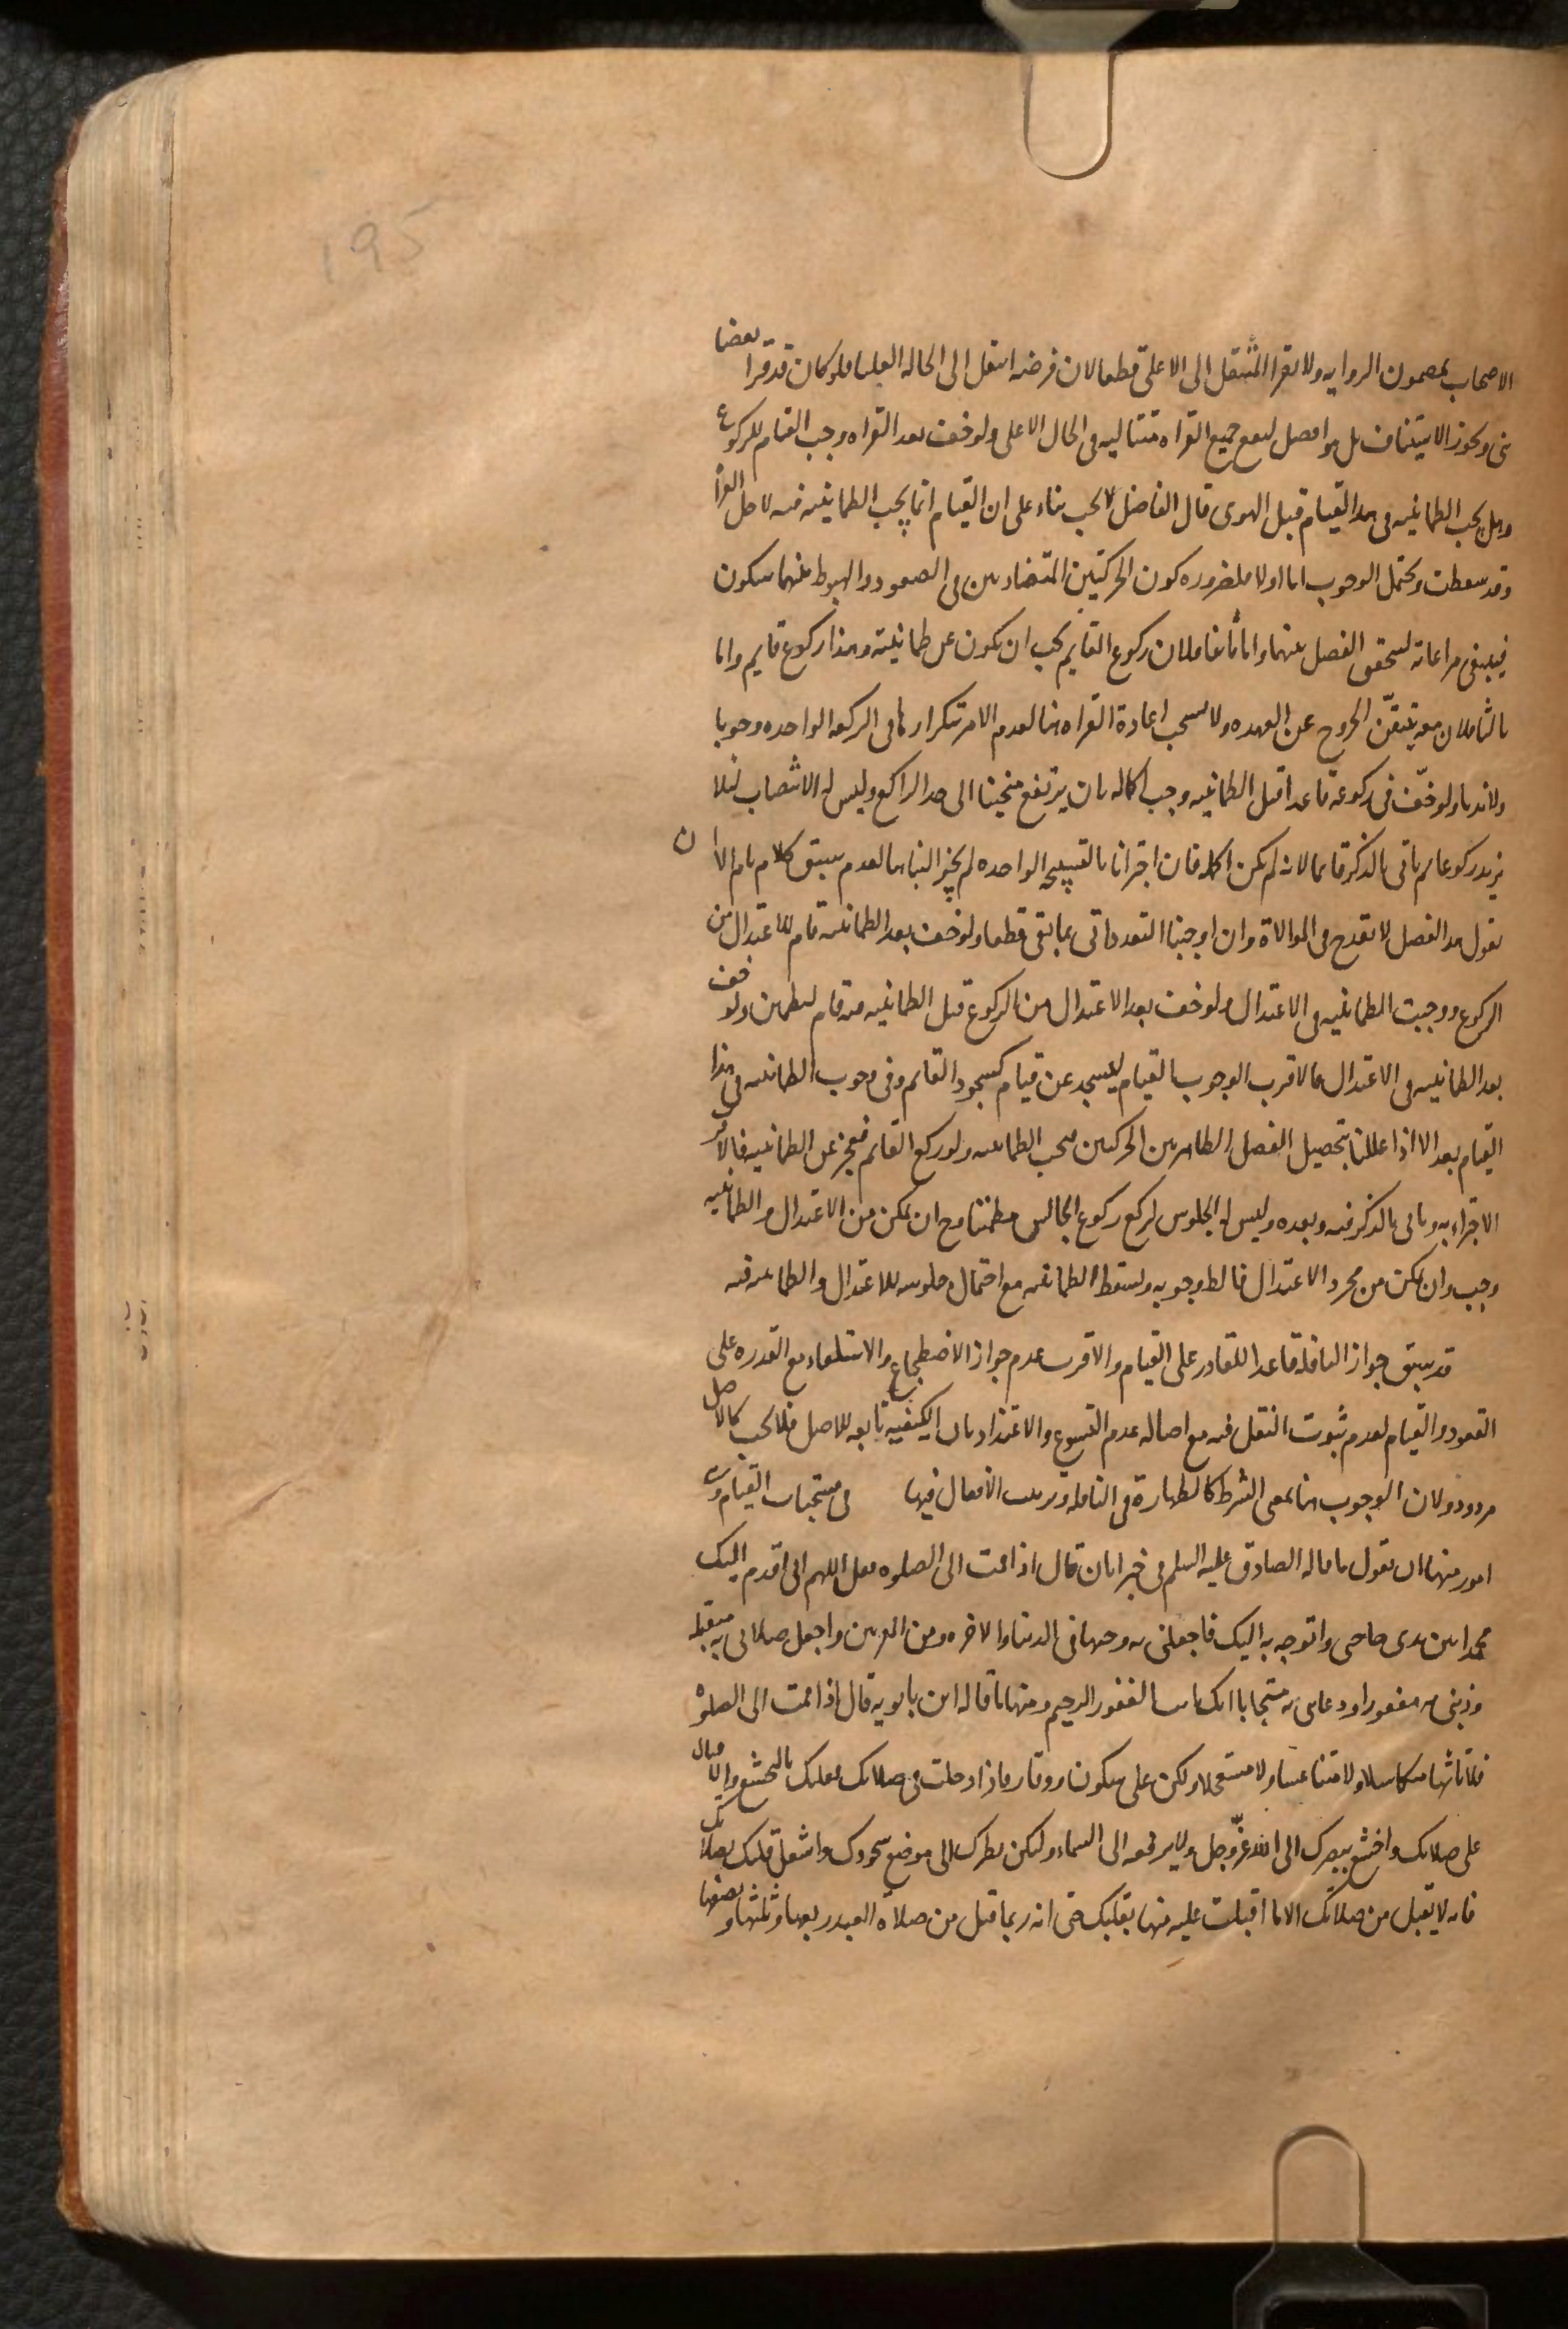 195
الاصحاب بمضمون الروايه ولا يقرا المنتقل الى الاعلى قطعا لان فرضه انتقل الى الحاله العليا فلو كان قد قرا بعضا
بنى ويجوز الاستيناف بل هو افضل ليقع جميع القراه متتاليه فى الحال الاعلى ولو خف بعد القراه وجب القيام للركوع
وهل يجب الطمانينه فى هذا القيام قبل الهوى قال الفاضل لا يجب بناء على ان القيام انما يجب الطمانينه فيه لاجل القراه
وقد سقطت ويحتمل الوجوب اما اولا فلضروره كون الحركتين المتضادتين فى الصعود والهبوط بينهما سكون
فينبغى مراعاته ليتحقق الفصل بينهما واما ثانيا فلان ركوع القايم يجب ان يكون عن طمانينة وهذا ركوع قايم واما
ثالثا فلان معه تيقّن الخروج عن العهده ولا يستحب اعادة القراه هنا لعدم الامر بتكرارها فى الركعه الواحده وجوبا
ولا ندبا ولو خفّ فى ركوعه قاعدا قبل الطمانينه وجب اكماله بان يرتفع منحنيا الى حد الراكع وليس له الانتصاب لئلا
يزيد ركوعا ثم ياتى بالذكر قايما لانه لم يكن اكمله فان اجتزانا بالتسبيحه الواحده لم يجز البناء هنا لعدم سبق كلام تام الا ان
نقول هذا الفصل لا يقدح فى الموالاة وان اوجبنا التعدد اتى بما بقى قطعا ولو خف بعد الطمانينه قام للاعتدال من
الركوع ووجبت الطمانينه فى الاعتدال ولو خف بعد الاعتدال من الركوع قبل الطمانينه فيه قام ليطمئن ولو خف
بعد الطمانينه فى الاعتدال فالاقرب الوجوب القيام ليسجد عن قيام كسجود القايم وفى وجوب الطمانينه فى هذا
القيام بعد الا اذا عللنا بتحصيل الفصل الظاهر بين الحركتين فيجب الطمانينه ولو ركع القايم فعجز عن الطمانينه فالاقرب
الاجتزاء به وياتى بالذكر فيه وبعده وليس له الجلوس ليركع ركوع الجالس مطمئنا وح ان تمكن من الاعتدال والطمانينه
وجب وان تمكن من مجرد الاعتدال فالظ وجوبه وتسقط الطمانينه مع احتمال جلوسه للاعتدال والطمانينه فيه
قد سبق جواز النافلة قاعدا للقادر على القيام والاقرب عدم جواز الاضطجاع والاستلقاء مع القدره على
القعود والقيام لعدم ثبوت النقل فيه مع اصاله عدم التسويغ والاعتذار بان الكيفيه تابعه للاصل فلا تجب كالاصل
مردود ولان الوجوب هنا بمعنى الشرط كالطهارة فى النافله وترتيب الافعال فيها فى مستحبات القيام وهى
امور منها ان يقول ما قاله الصادق عليه السلم فى خبر ابان قال اذا قمت الى الصلوه فقل اللهم انى اقدم اليك
محمدا بين يدى حاجتى واتوجه به اليك فاجعلنى به وجيها فى الدنيا والاخره ومن المقربين واجعل صلاتى به متقبله
وذنبى به مغفورا ودعائى به مستجابا انك انت الغفور الرحيم ومنها ما قاله ابن بابويه قال اذا قمت الى الصلوة
فلا تاتها متكاسلا ولا متناعسا ولا مستعجلا ولكن على سكون ووقار فاذا دخلت فى صلاتك فعليك بالتخشع والاقبال
على صلاتك واخشع ببصرك الى الله عزّ وجل ولا ترفعه الى السماء وليكن نظرك الى موضع سجودك واشغل قلبك بصلاتك
فانه لا يقبل من صلاتك الا ما اقبلت عليه منها بقلبك حتى انه ربما قبل من صلاة العبد ربعها وثلثها ونصفها